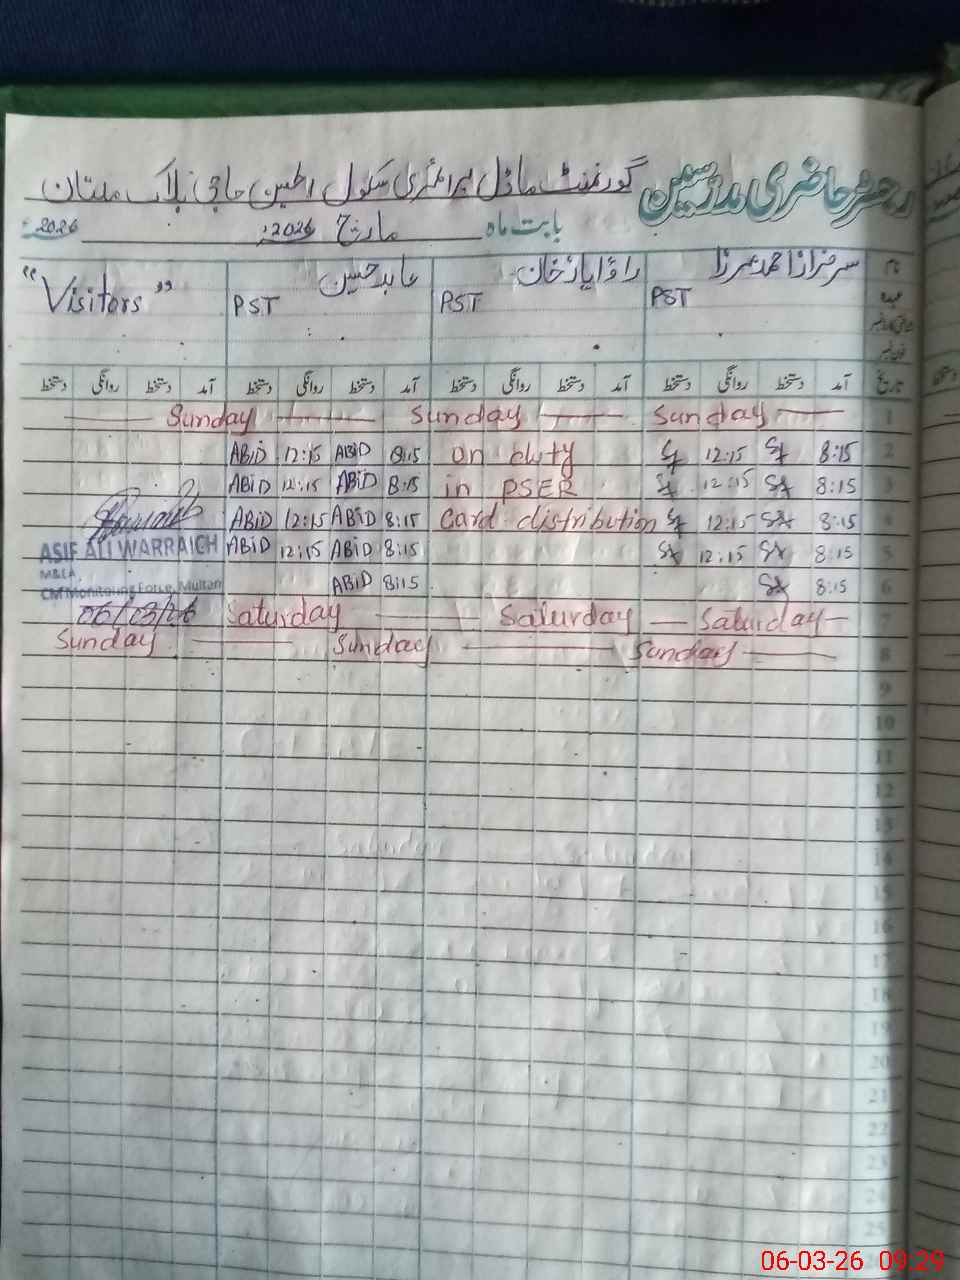 رجسٹر حاضری مدرسین
گورنمنٹ ماڈل پرائمری سکول حاجی بلاک ملتان
بابت ماہ مارچ 2026ء 2026ء
نام سرفراز احمد مرزا راؤ ایاز خان عابد حسین "Visitors"
عہدہ PST PST PST
تاریخ آمد دستخط روانگی دستخط آمد دستخط روانگی دستخط آمد دستخط روانگی دستخط آمد دستخط روانگی دستخط
Sunday Sunday Sunday 1
ABiD 12:15 ABiD 8:15 on duty 12:15 8:15 2
ABiD 12:15 ABiD 8:15 in PSER 12:15 8:15 3
ABiD 12:15 ABiD 8:15 Card distribution 12:15 8:15 4
ASIF ALI WARRAICH ABiD 12:15 ABiD 8:15 12:15 8:15 5
M&EA
CM Monitoring Force, Multan ABiD 8:15 8:15 6
06/03/26 Saturday Saturday Saturday 7
Sunday Sunday Sunday 8
9
10
11
12
13
14
15
16
17
18
19
20
21
22
23
24
25
06-03-26 09:29